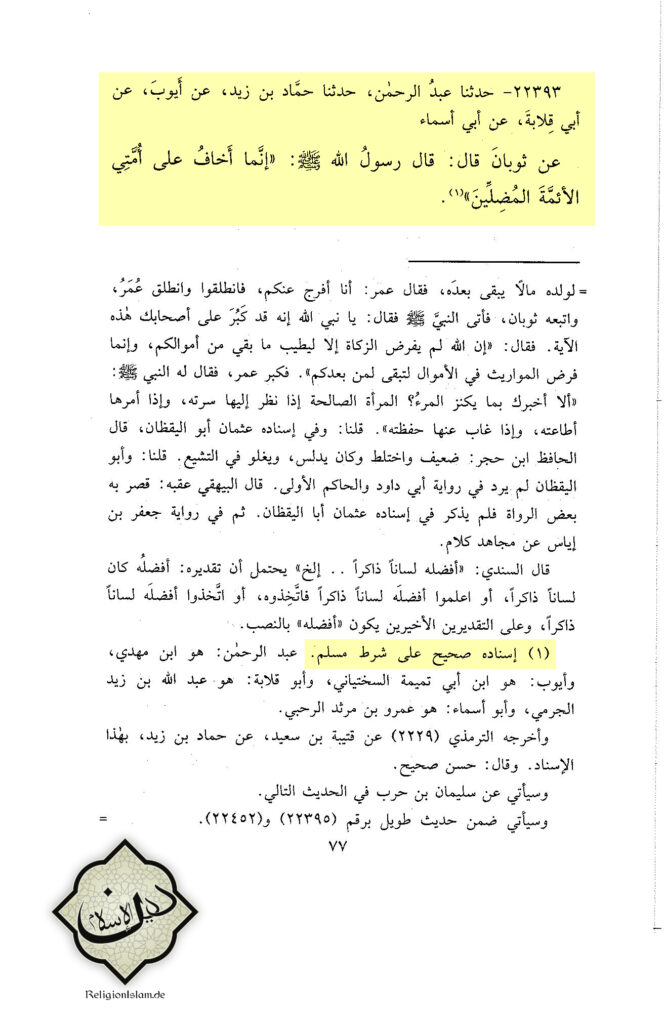 ٢٢٣٩٣- حدثنا عبدُ الرحمٰن، حدثنا حمَّاد بن زيد، عن أَيوبَ، عن
أبي قِلابةَ، عن أبي أسماء
عن ثوبانَ قال: قال رسولُ الله ﷺ: «إنَّما أَخافُ على أُمَّتِي
الأئمَّةَ المُضِلِّينَ»(١).
= لولده مالًا يبقى بعدَه، فقال عمر: أنا أفرج عنكم، فانطلقوا وانطلق عُمَرُ،
واتبعه ثوبان، فأتى النبيَّ ﷺ فقال: يا نبي الله إنه قد كَبُرَ على أصحابك هٰذه
الآية. فقال: «إن الله لم يفرض الزكاة إلا ليطيب ما بقي من أموالكم، وإنما
فرض المواريث في الأموال لتبقى لمن بعدكم». فكبر عمر، فقال له النبي ﷺ:
«ألا أخبرك بما يكنز المرءُ؟ المرأة الصالحة إذا نظر إليها سرته، وإذا أمرها
أطاعته، وإذا غاب عنها حفظته». قلنا: وفي إسناده عثمان أبو اليقظان، قال
الحافظ ابن حجر: ضعيف واختلط وكان يدلس، ويغلو في التشيع. قلنا: وأبو
اليقظان لم يرد في رواية أبي داود والحاكم الأولى. قال البيهقي عقبه: قصر به
بعض الرواة فلم يذكر في إسناده عثمان أبا اليقظان. ثم في رواية جعفر بن
إياس عن مجاهد كلام.
قال السندي: «أفضله لساناً ذاكراً . . إلخ» يحتمل أن تقديره: أفضلُه كان
لساناً ذاكراً، أو اعلموا أفضلَه لساناً ذاكراً فاتَّخِذوه، أو اتَّخذوا أفضلَه لساناً
ذاكراً، وعلى التقديرين الأخيرين يكون «أفضله» بالنصب.
(١) إسناده صحيح على شرط مسلم. عبد الرحمٰن: هو ابن مهدي،
وأيوب: هو ابن أبي تميمة السختياني، وأبو قلابة: هو عبد الله بن زيد
الجرمي، وأبو أسماء: هو عمرو بن مرثد الرحبي.
وأخرجه الترمذي (٢٢٢٩) عن قتيبة بن سعيد، عن حماد بن زيد، بهٰذا
الإسناد. وقال: حسن صحيح.
وسيأتي عن سليمان بن حرب في الحديث التالي.
وسيأتي ضمن حديث طويل برقم (٢٢٣٩٥) و(٢٢٤٥٢). =
٧٧
دين الإسلام
ReligionIslam.de